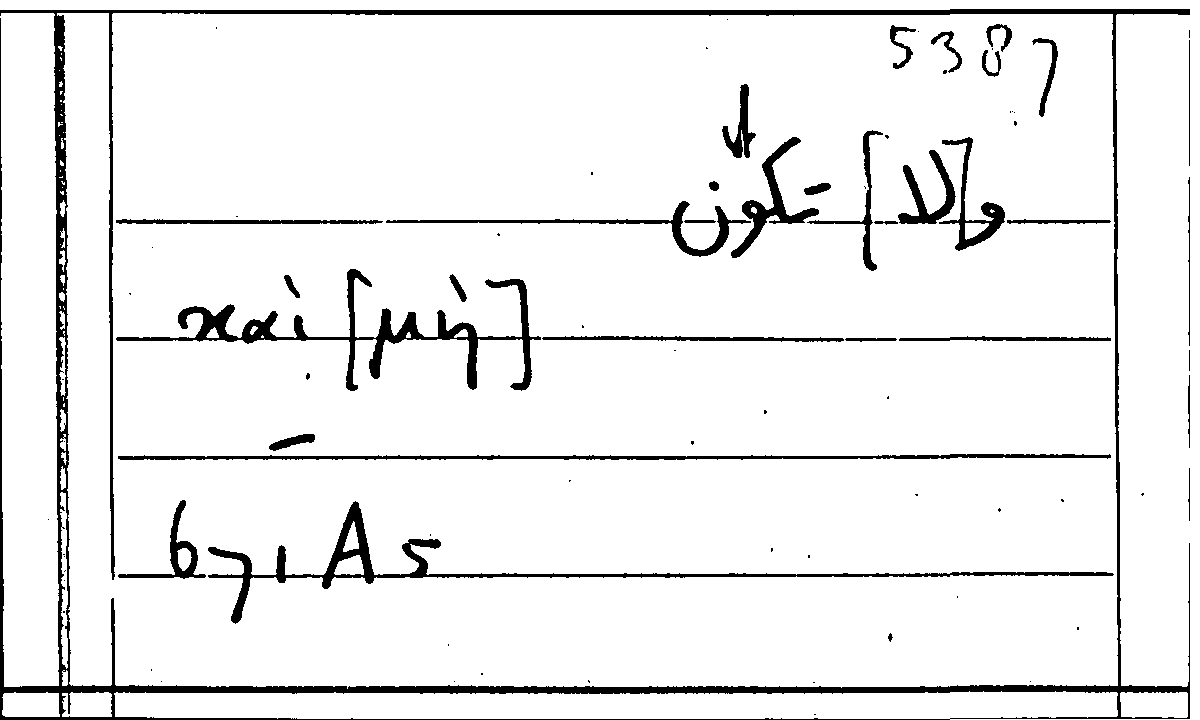 5387
و[لا] يكون
καὶ [μὴ]
671 A 5